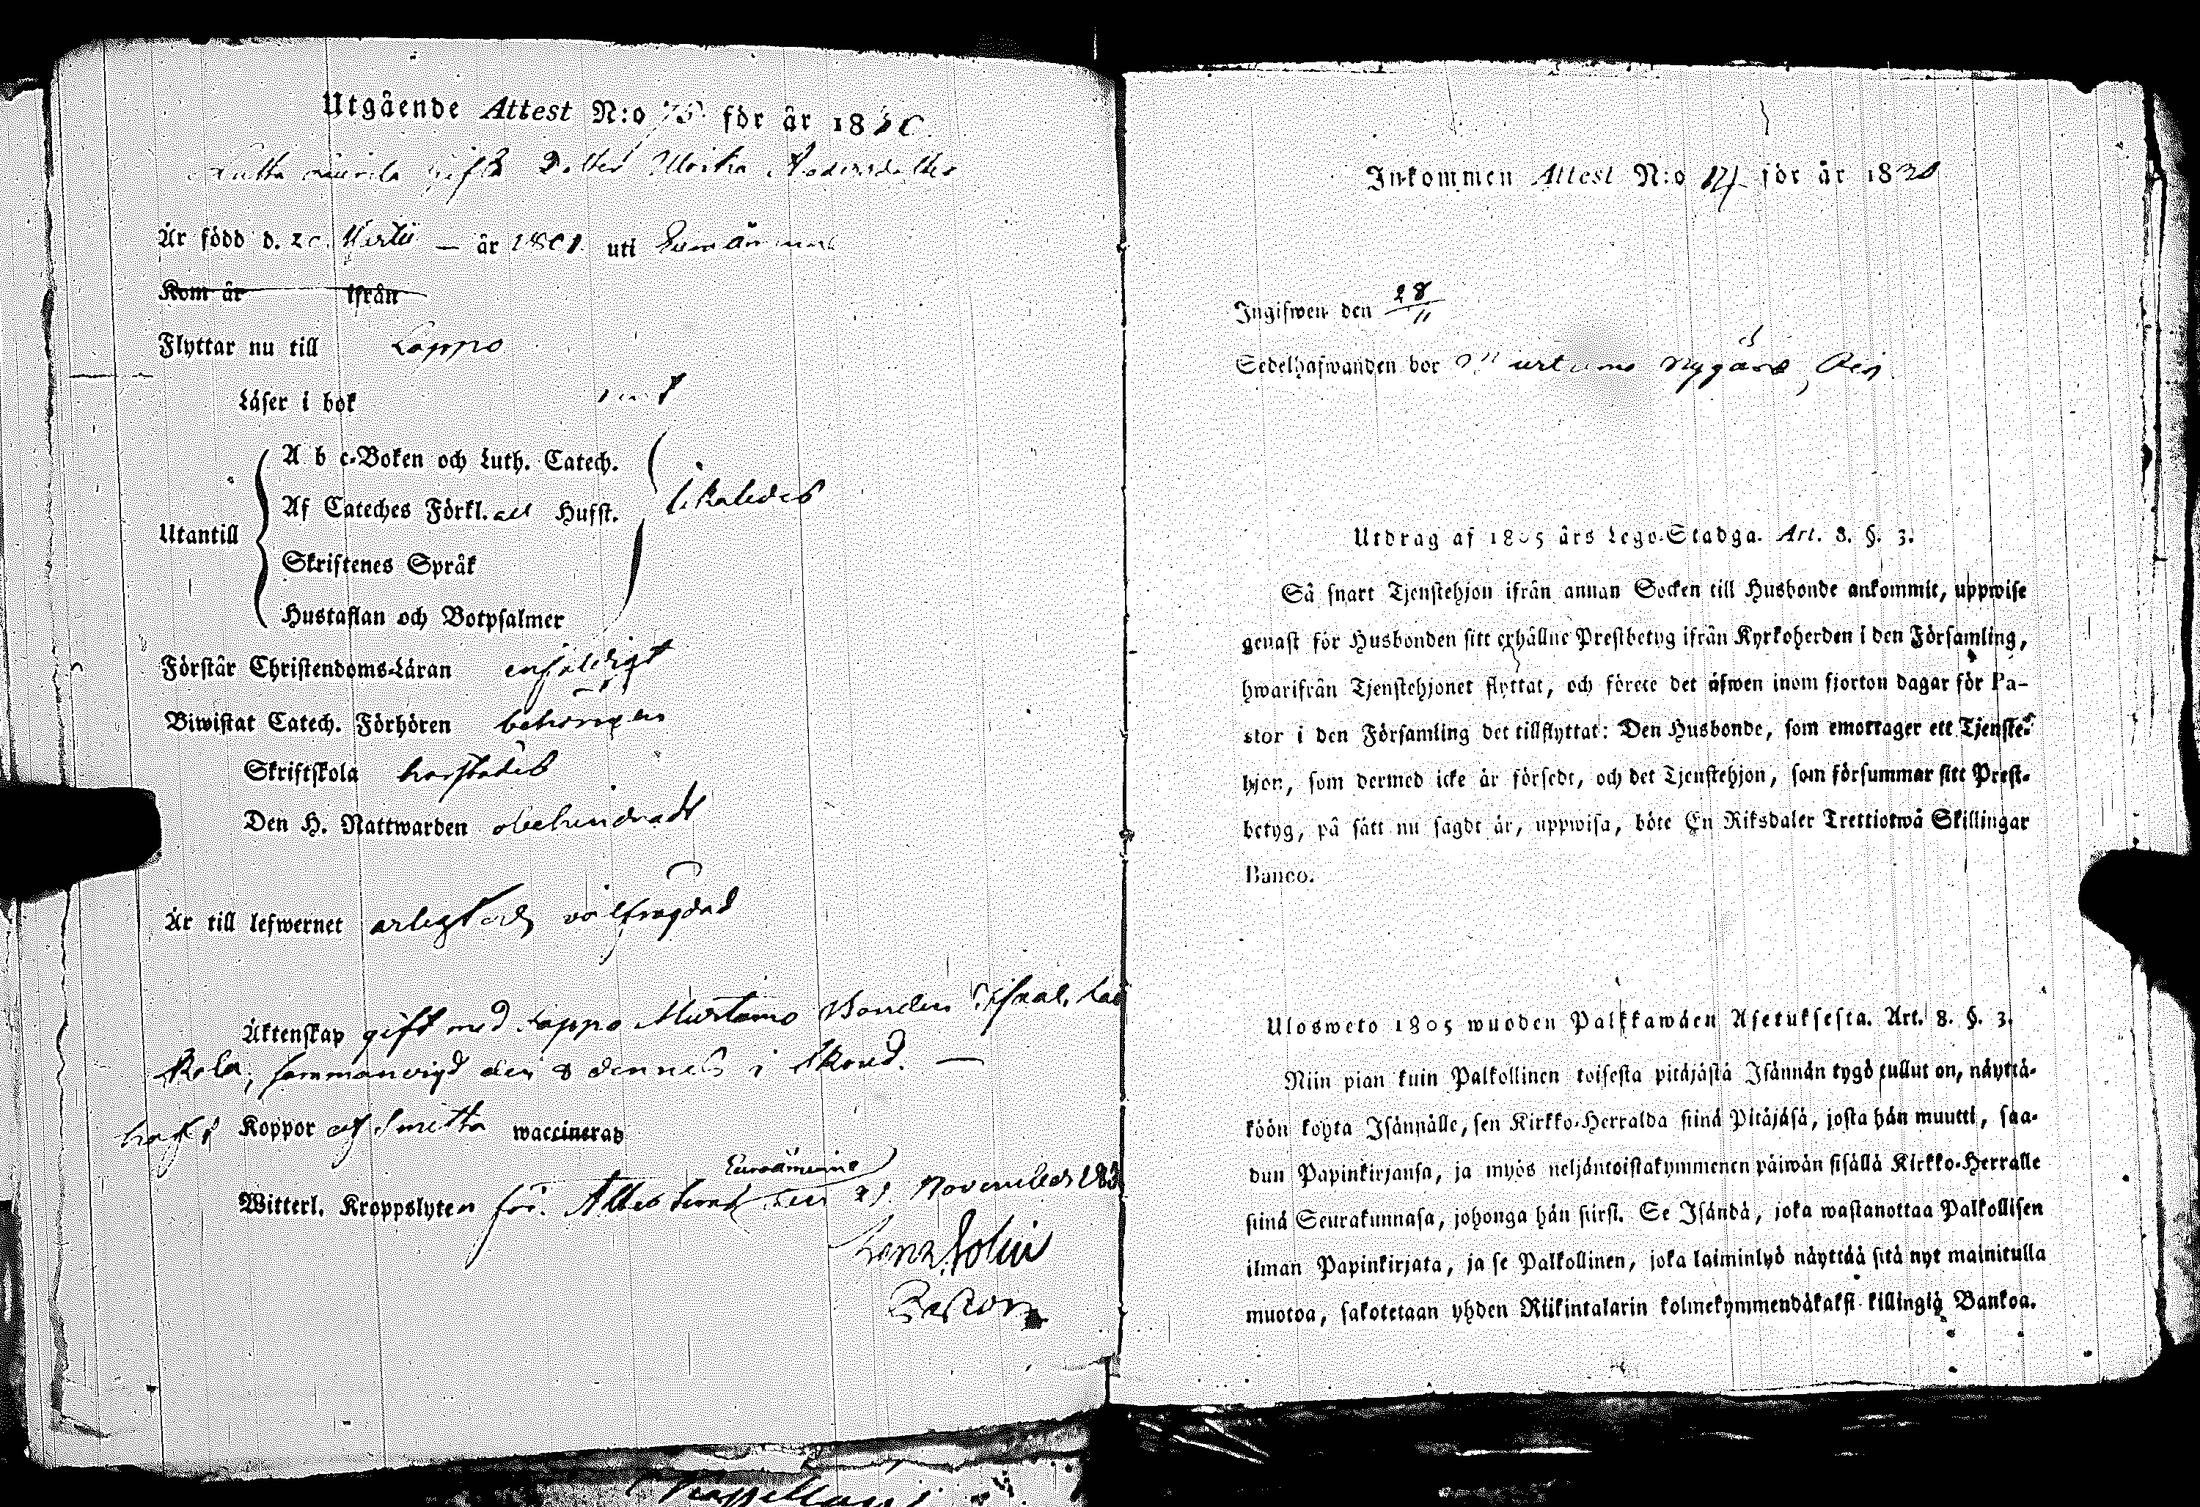 Utgående Attest N:o 75 för år 1830
gifta Dotter Ulrika Andersdotter
Är född d. 20 Martii — år 1801 uti Euraåminne
Kom år ifrån
Flyttar nu till Lappo
Läser i bok
Utantill
A b c-Boken och Luth. Catech.
Af Cateches Förkl. all Husst.
likaledes
Skriftenes Språk
Hustaflan och Botpsalmer
Förstår Christendoms-Läran enfaldigt
Biwistat Catech. Förhören behörigen
Skriftskola harstädes
Den H. Nattwarden obehindradt
Är till lefwernet ärligt och välfrägdad
Äktenskap gift med Lappo Murtamo Bonden
sammanvigd den 8 dennes i
haft Koppor af Smitta waccinerad
Euraåminne
Witterl. Kroppslyten för. Attesterad den 21 November 183
Pastor
Inkommen Attest N:o 124 för år 1830
Ingifwen den 28/11
Sedelhafwanden bor Murtamo Nygård
Utdrag af 1805 års Lego-Stadga. Art. 8. §. 3.
Så snart Tjenstehjon ifrån annan Socken till Husbonde ankommit, uppwise
genast för Husbonden sitt erhållne Prestbetyg ifrån Kyrkoherden i den Församling,
hwarifrån Tjenstehjonet flyttat, och förete det äfwen inom fjorton dagar för Pa-
stor i den Församling det tillflyttat: Den Husbonde, som emottager ett Tjenste-
hjon, som dermed icke är försedt, och det Tjenstehjon, som försummar sitt Prest-
betyg, på sätt nu sagdt är, uppwisa, böte En Riksdaler Trettiotwå Skillingar
Banco.
Ulosweto 1805 wuoden Palkkawäen Asetuksesta. Art. 8. §. 3.
Niin pian kuin Palkollinen toisesta pitäjästä Isännän tygö tullut on, näyttä-
köön kohta Isännälle, sen Kirkko-Herralda siinä Pitäjäsä, josta hän muutti, saa-
dun Papinkirjansa, ja myös neljäntoistakymmenen päiwän sisällä Kirkko-Herralle
siinä Seurakunnasa, johonga hän siirst. Se Isändä, joka wastanottaa Palkollisen
ilman Papinkirjata, ja se Palkollinen, joka laiminlyö näyttää sitä nyt mainitulla
muotoa, sakotetaan yhden Riikintalarin kolmekymmendäkaksi killingiä Bankoa.